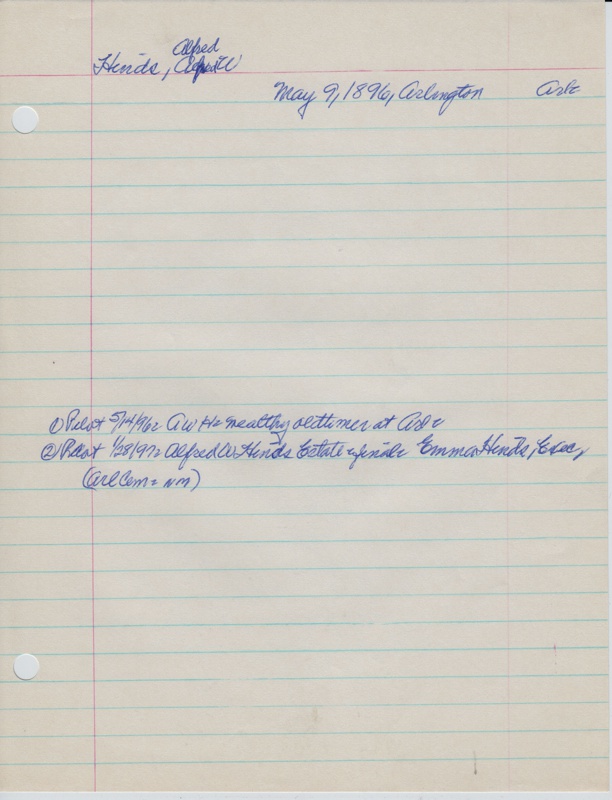 Alfred
Hinds, Alfred W
May 9, 1896, Arlington Arl=
① Pilot 5/14/96= AW H= wealthy oldtimer at Arl=
② Pilot 1/28/97= Alfred W. Hinds Estate = final= Emma Hinds, Exec,
(Arl Cem = NM)